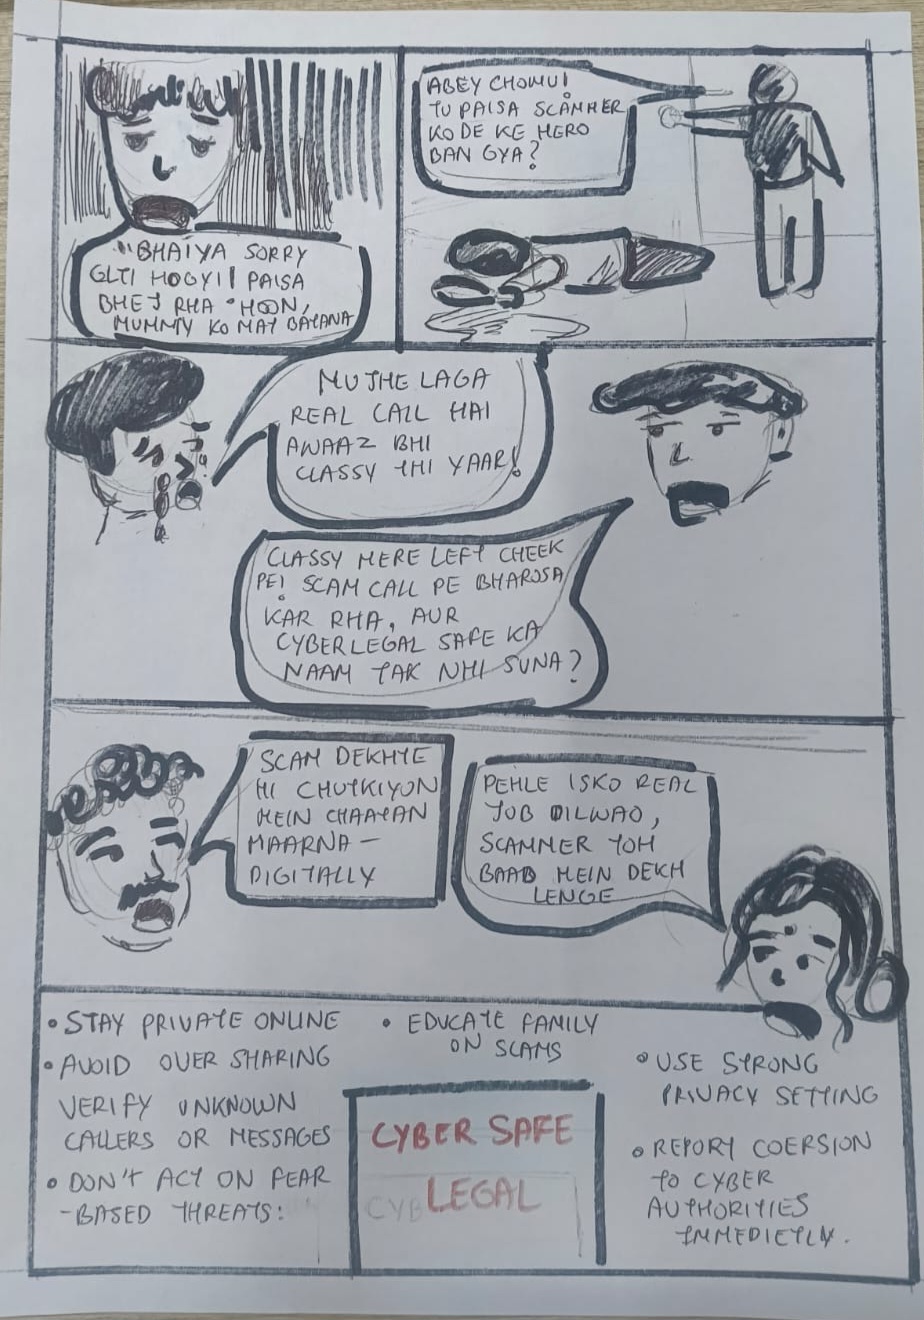 "BHAIYA SORRY
GLTI HOGYI! PAISA
BHEJ RHA HOON,
MUMMY KO MAT BATANA
ABEY CHOMU!
TU PAISA SCAMMER
KO DE KE HERO
BAN GYA?
MUJHE LAGA
REAL CALL HAI
AWAAZ BHI
CLASSY THI YAAR!
CLASSY MERE LEFT CHEEK
PE! SCAM CALL PE BHAROSA
KAR RHA, AUR
CYBERLEGAL SAFE KA
NAAM TAK NHI SUNA?
SCAM DEKHTE
HI CHUTKIYON
MEIN CHAATAN
MAARNA -
DIGITALLY
PEHLE ISKO REAL
JOB DILWAO,
SCAMMER TOH
BAAD MEIN DEKH
LENGE
• STAY PRIVATE ONLINE
• AVOID OVER SHARING
VERIFY UNKNOWN
CALLERS OR MESSAGES
• DON'T ACT ON FEAR
-BASED THREATS:
• EDUCATE FAMILY
ON SCAMS
CYBER SAFE
LEGAL
CYB
• USE STRONG
PRIVACY SETTING
• REPORT COERSION
TO CYBER
AUTHORITIES
IMMEDIETLY.